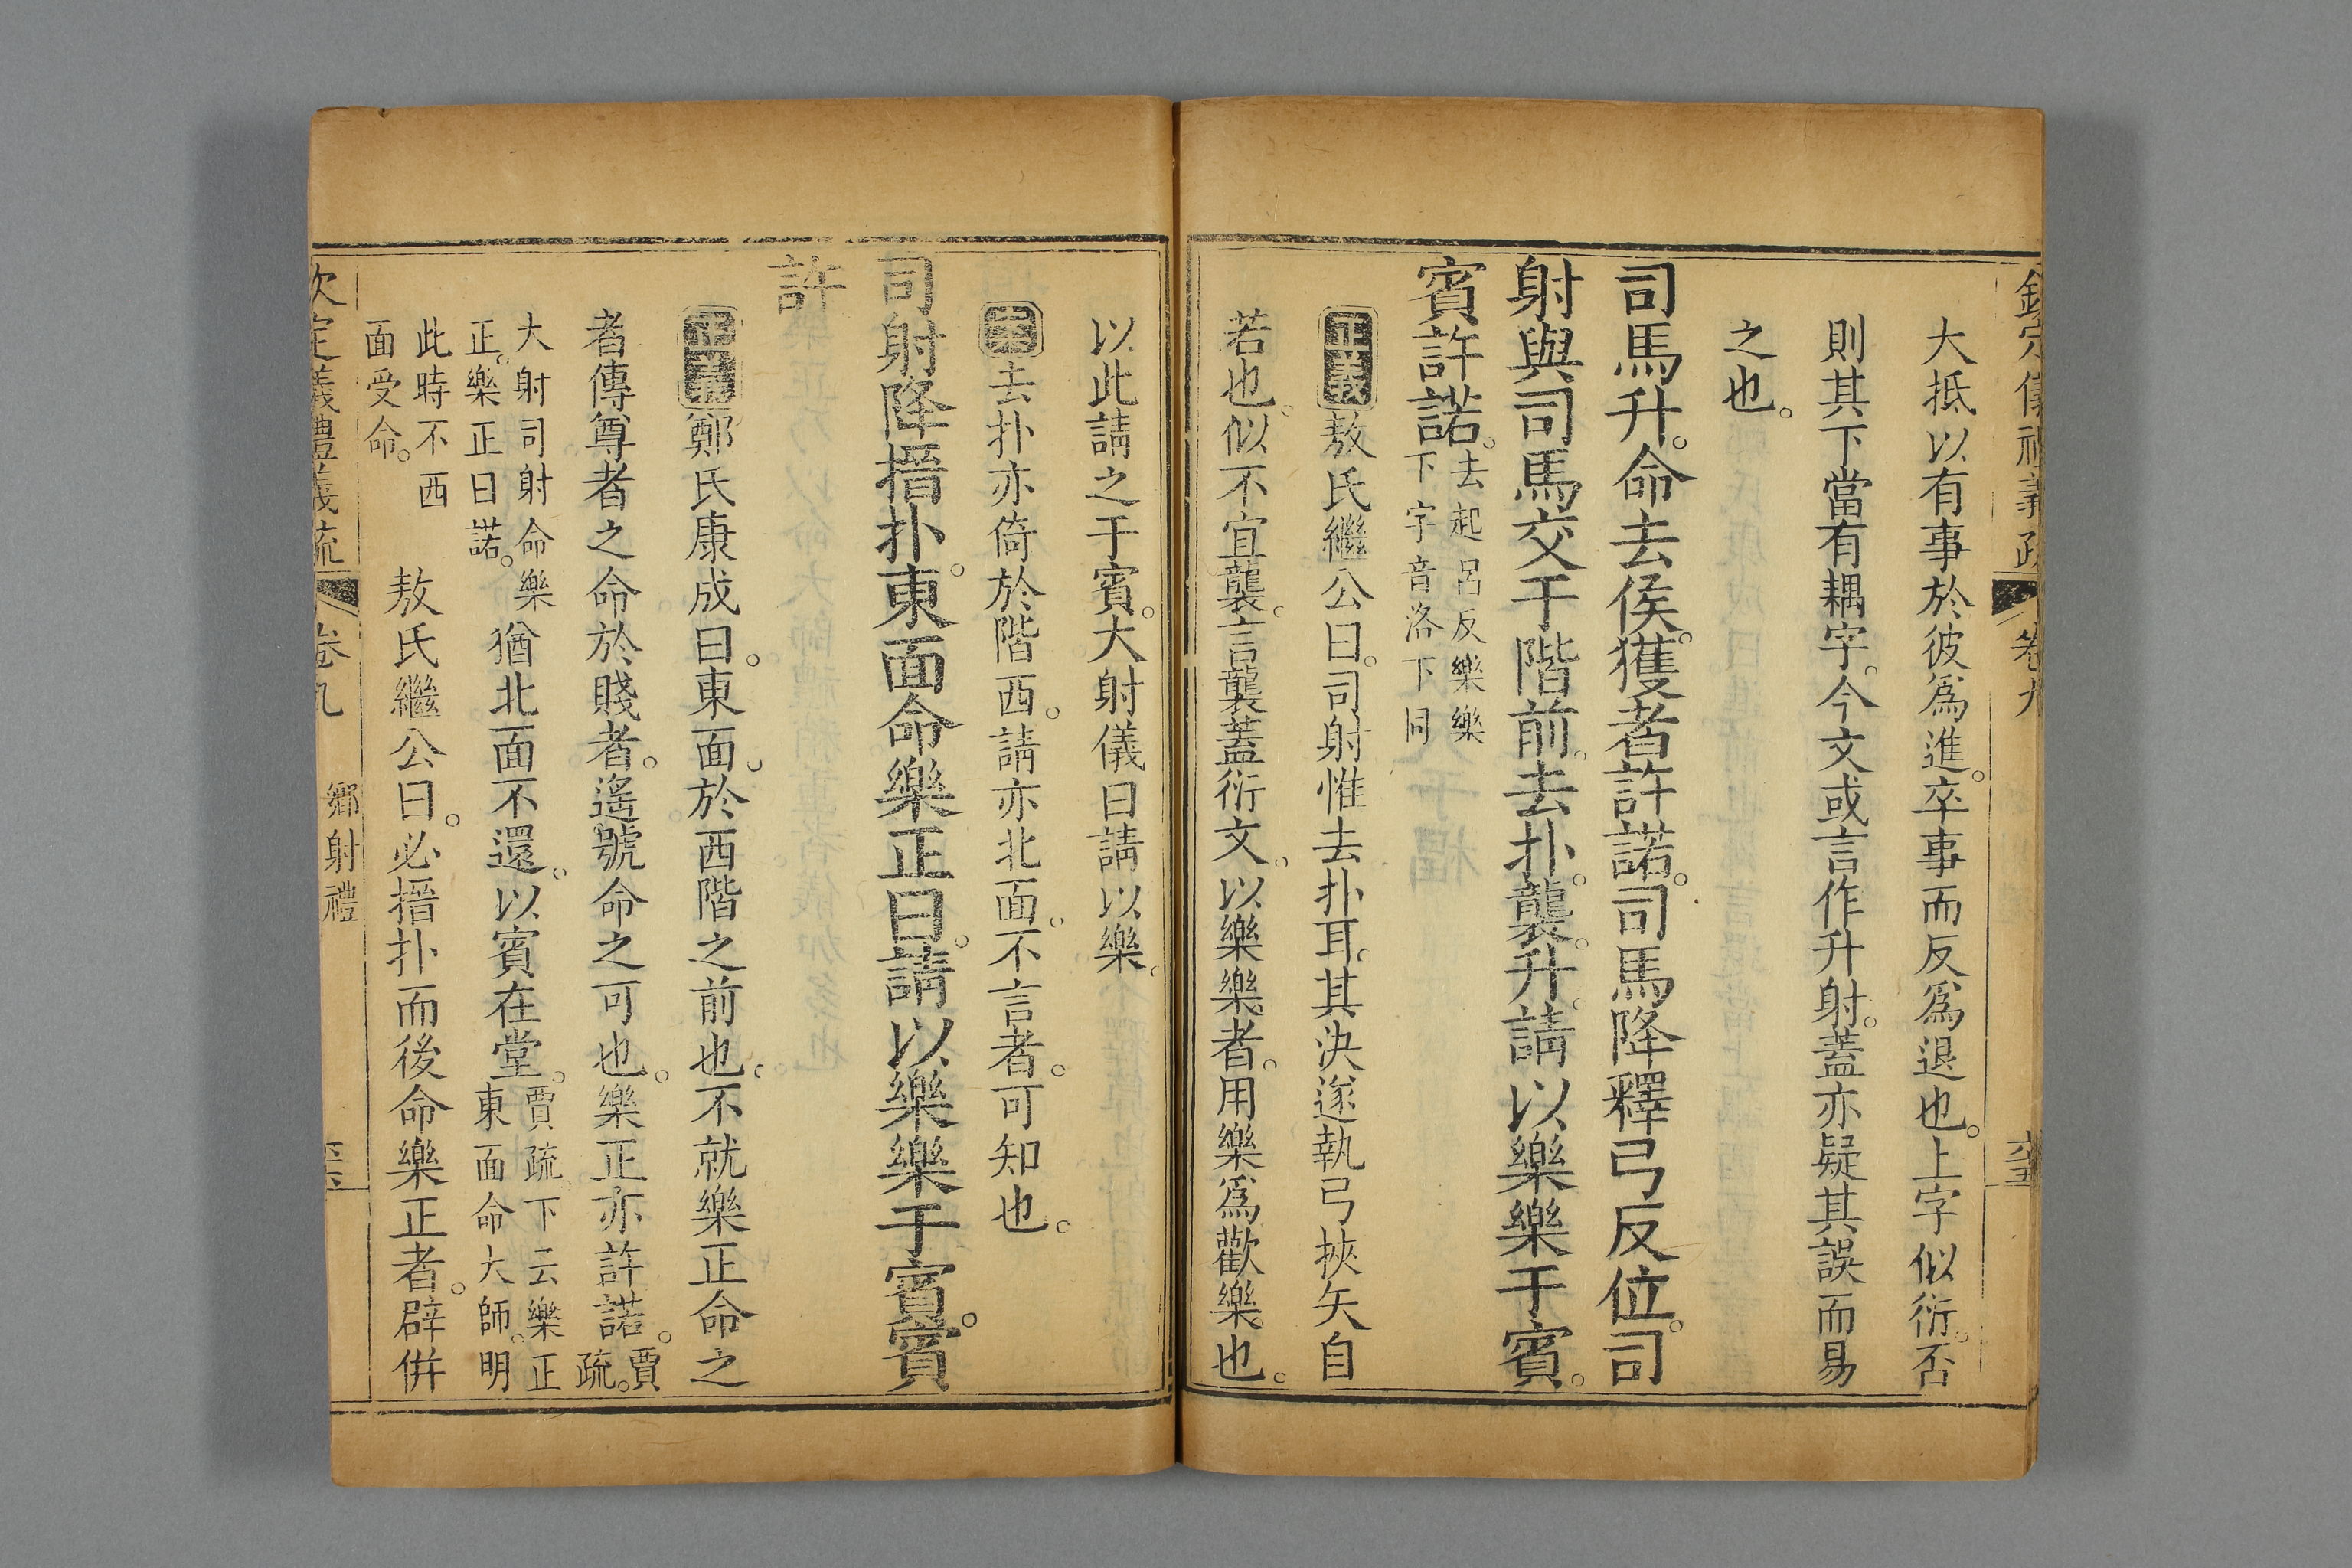 欽定儀禮義疏 卷九 六十五
大抵以有事於彼爲進。卒事而反爲退也。上字似衍。否
則其下當有耦字。今文或言作升射。蓋亦疑其誤而易
之也。
司馬升。命去侯。獲者許諾。司馬降釋弓反位。司
射與司馬交于階前。去扑。襲。升。請以樂樂于賓。
賓許諾。去起呂反樂樂下字音洛下同
正義敖氏繼公曰。司射惟去扑耳。其決遂執弓挾矢自
若也。似不宜襲。言襲蓋衍文。以樂樂者。用樂爲歡樂也。
以此請之于賓。大射儀曰請以樂。
案去扑亦倚於階西。請亦北面。不言者。可知也。
司射降搢扑。東面命樂正曰。請以樂樂于賓。賓
許
正義鄭氏康成曰。東面。於西階之前也。不就樂正命之
者傳尊者之命於賤者。遙號命之可也。樂正亦許諾。賈疏。
大射司射命樂正。樂正曰諾。猶北面不還。以賓在堂。賈疏下云樂正東面命大師。明
此時不西面受命。敖氏繼公曰。必搢扑而後命樂正者。辟併
欽定儀禮義疏 卷九 鄉射禮